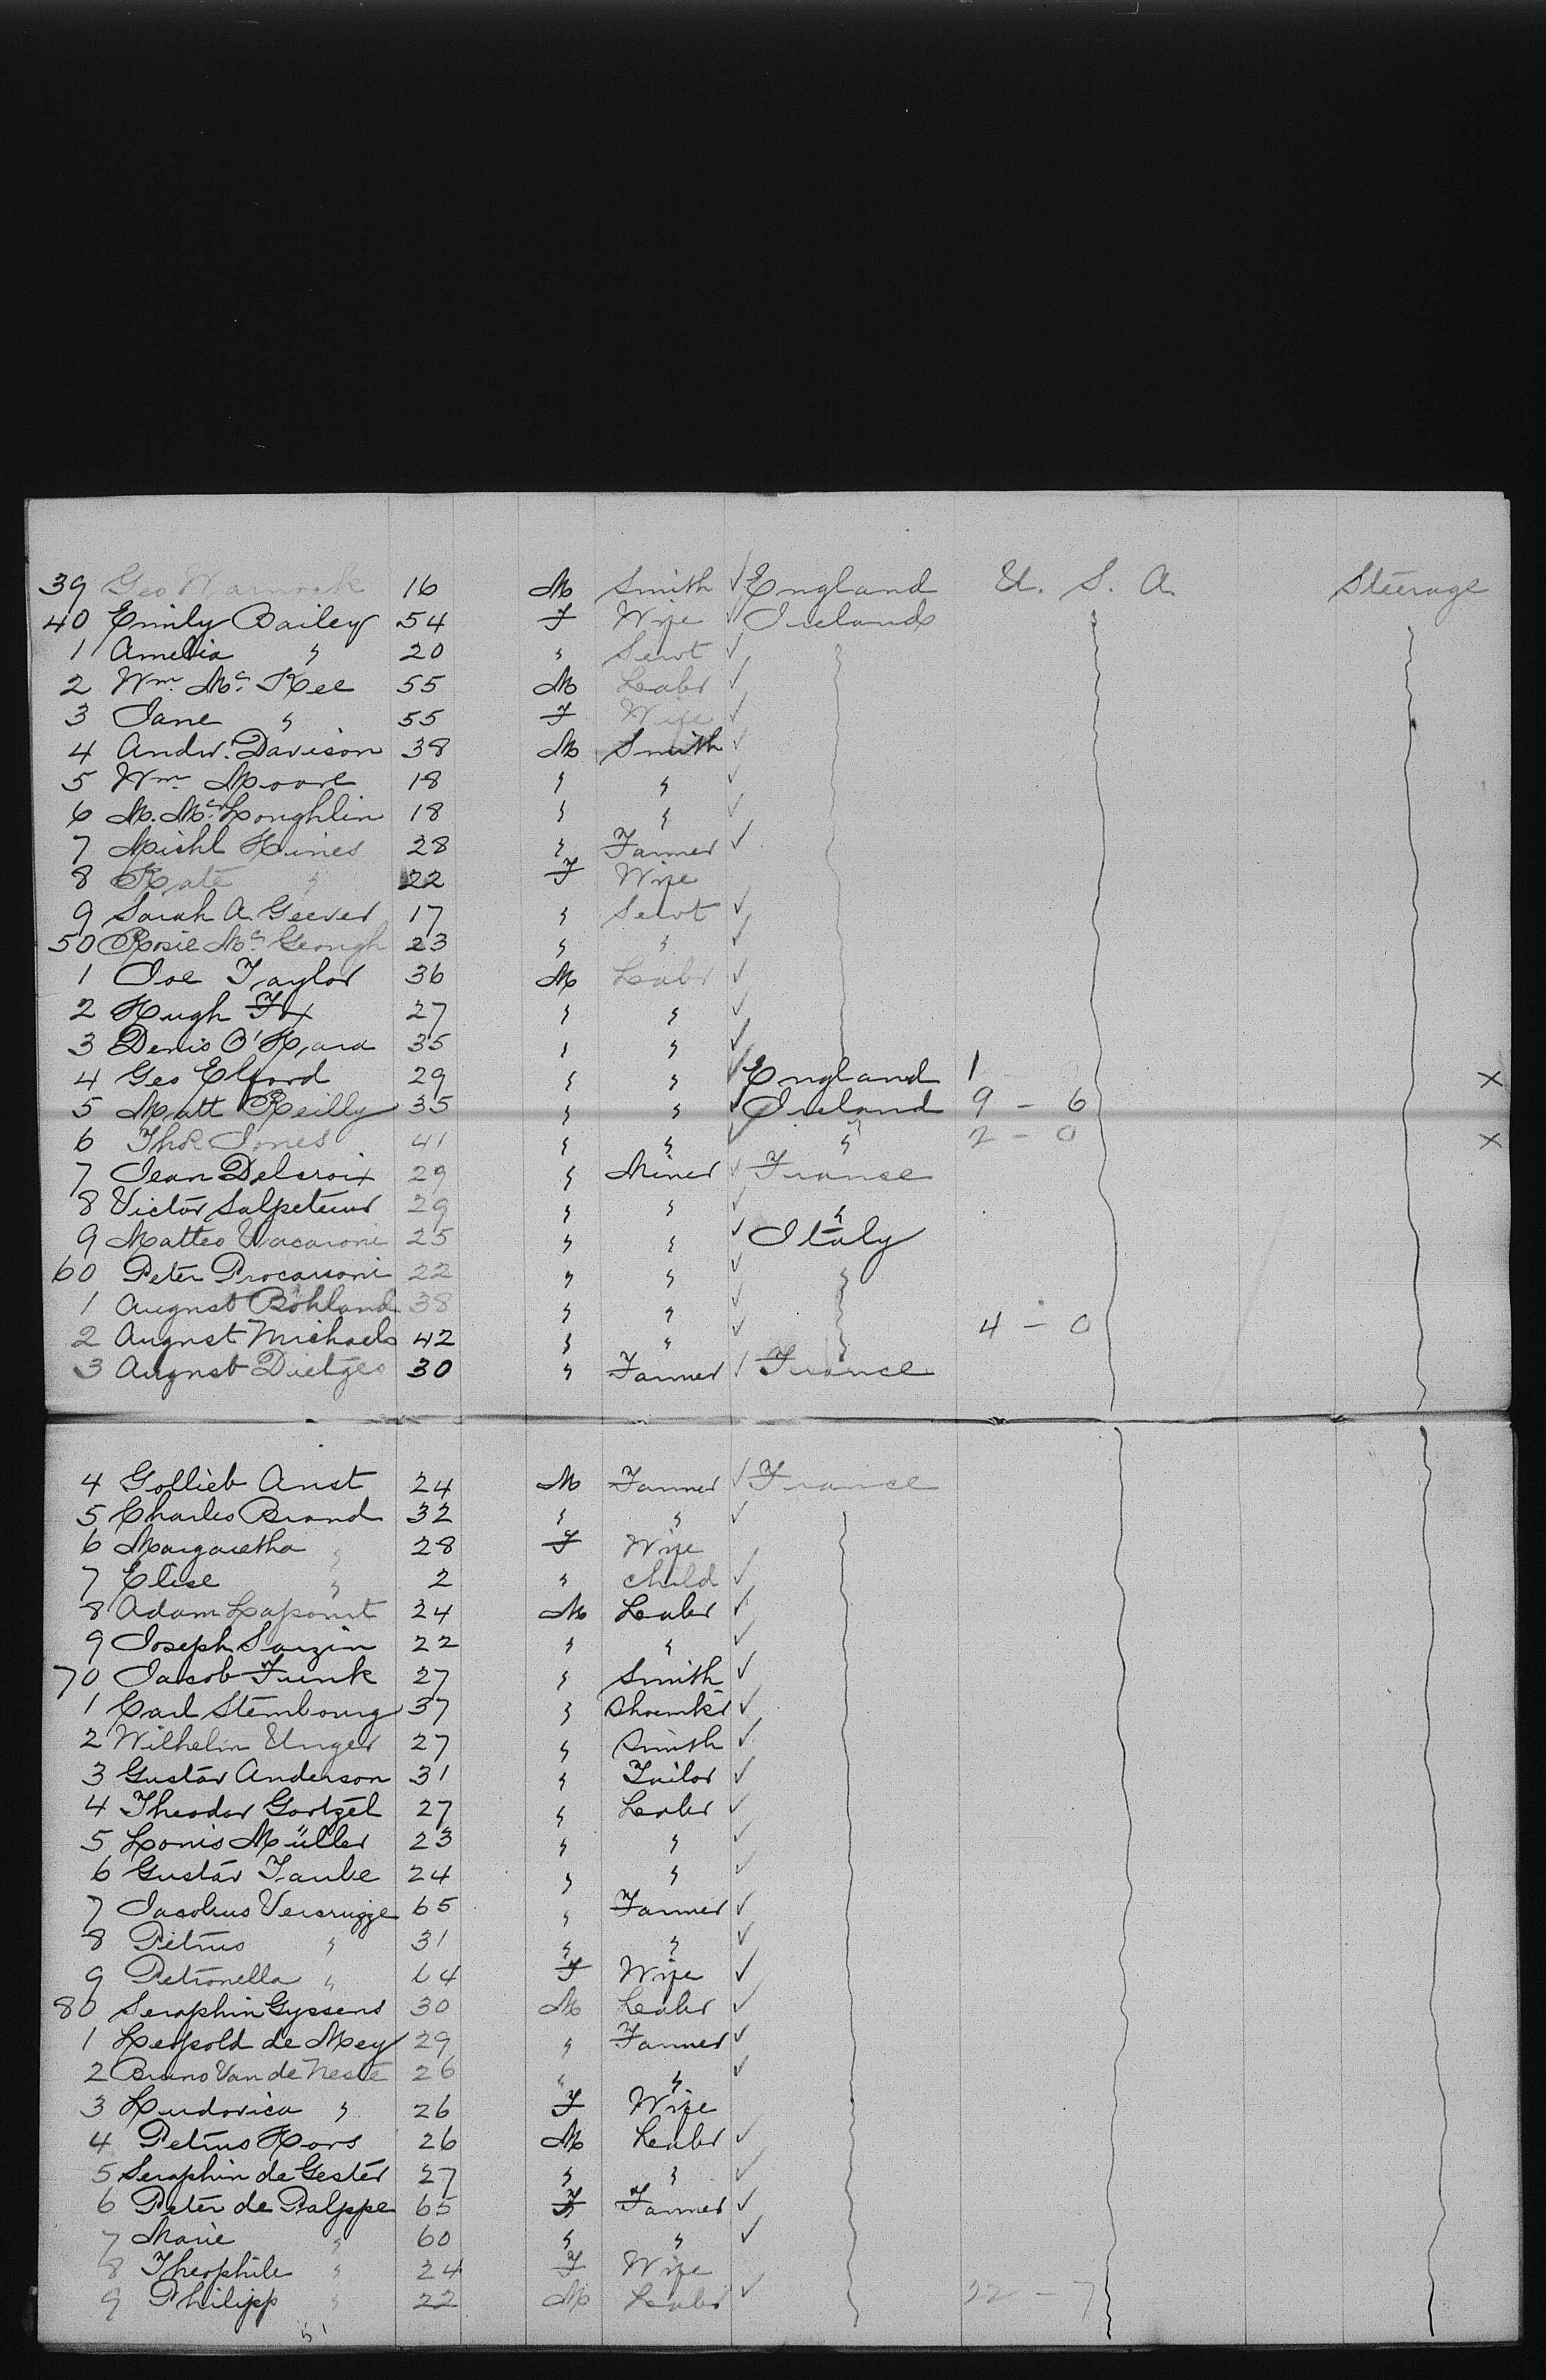 39 Geo Warnock 16 M Smith √ England U. S. A. Steerage
40 Emily Bailey 54 F Wife √ Ireland
1 Amelia " 20 " Servt √
2 Wm. Mc. Kee 55 M Labr √
3 Jane " 55 F Wife √
4 Andw. Davison 38 M Smith √
5 Wm. Moore 18 " " √
6 M. Mc. Loughlin 18 " " √
7 Michl Hines 28 " Farmer √
8 Kate " 22 F Wife
9 Sarah A. Geever 17 " Servt √
50 Rosie Mc. Geough 23 " " √
1 Joe Taylor 36 M Labr √
2 Hugh Fox 27 " " √
3 Denis O'Hara 35 " " √
4 Geo Elford 29 " " √ England 1 x
5 Matt Reilly 35 " " √ Ireland 9 - 6
6 Thos Jones 41 " " √ " 2 - 0 x
7 Jean Delcroix 29 " Miner √ France
8 Victor Salpeteur 29 " " √ "
9 Matteo Vacaroni 25 " " √ Italy
60 Peter Procarroni 22 " " √ "
1 August Böhland 38 " " √
2 August Michaels 42 " " √ " 4 - 0
3 August Dietges 30 " Farmer √ France
4 Gollieb Anst 24 M Farmer √ France
5 Charles Brand 32 " " √
6 Margaretha " 28 F Wife
7 Elise " 2 " child √
8 Adam Lapont 24 M Labr √
9 Joseph Sarzin 22 " " √
70 Jacob Funk 27 " Smith √
1 Carl Stembourg 37 " Shoemkr √
2 Wilhelm Unger 27 " Smith √
3 Gustav Anderson 31 " Tailor √
4 Theodor Gortzel 27 " Labr √
5 Louis Müller 23 " " √
6 Gustav Taube 24 " " √
7 Jacobus Vercrugge 65 " Farmer √
8 Petrus " 31 " " √
9 Petronella " 64 F Wife √
80 Seraphin Gyssens 30 M Labr √
1 Leopold de Mey 29 " Farmer √
2 Bruno Van de Neste 26 " " √
3 Ludovica " 26 F Wife
4 Petrus Hors 26 M Labr √
5 Seraphin de Gester 27 " " √
6 Peter de Palppe 65 F Farmer √
7 Marie " 60 " " √
8 Theophile " 24 F Wife
9 Philipp " 22 M Labr √ 22 - 7
51